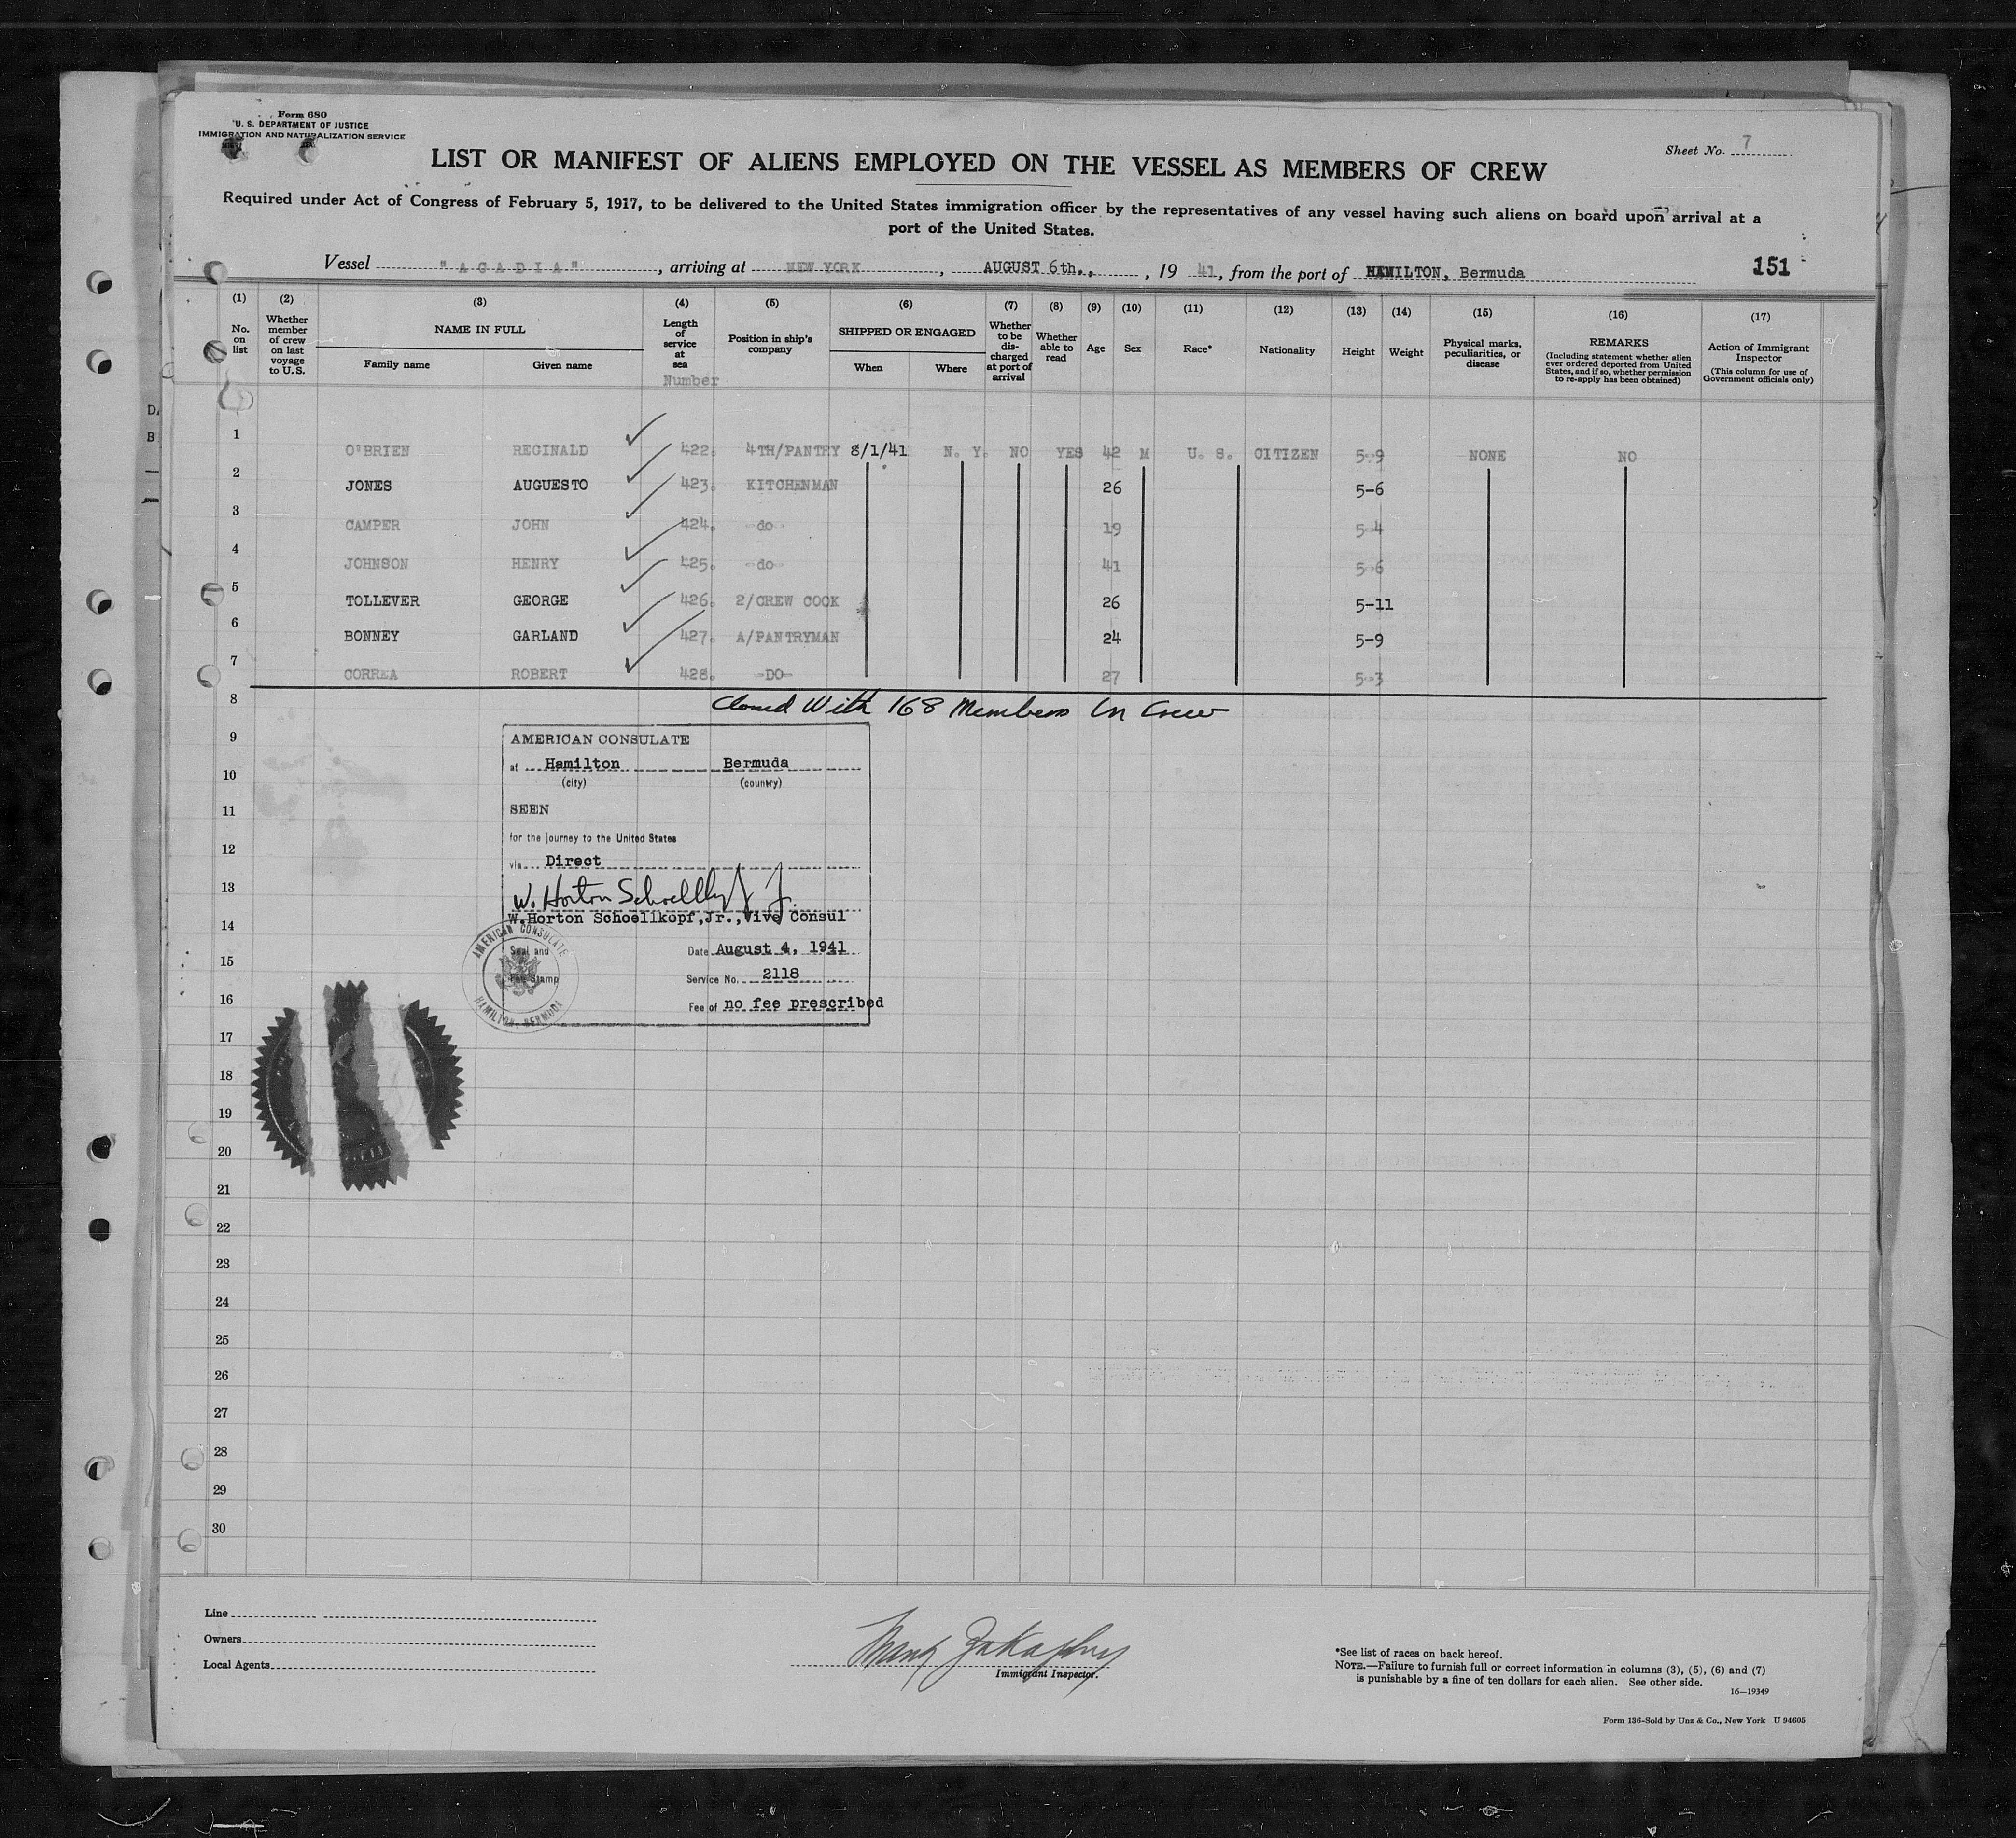 Form 680
U. S. DEPARTMENT OF JUSTICE
IMMIGRATION AND NATURALIZATION SERVICE
Sheet No. 7
LIST OR MANIFEST OF ALIENS EMPLOYED ON THE VESSEL AS MEMBERS OF CREW
Required under Act of Congress of February 5, 1917, to be delivered to the United States immigration officer by the representatives of any vessel having such aliens on board upon arrival at a
port of the United States.
Vessel "ACADIA", arriving at NEW YORK, AUGUST 6th., , 19 41, from the port of HAMILTON, Bermuda 151
(1) No. on list
(2) Whether member of crew on last voyage to U.S.
(3) NAME IN FULL Family name Given name
(4) Length of service at sea Number
(5) Position in ship's company
(6) SHIPPED OR ENGAGED When Where
(7) Whether to be discharged at port of arrival
(8) Whether able to read
(9) Age
(10) Sex
(11) Race*
(12) Nationality
(13) Height
(14) Weight
(15) Physical marks, peculiarities, or disease
(16) REMARKS (Including statement whether alien ever ordered deported from United States, and if so, whether permission to re-apply has been obtained)
(17) Action of Immigrant Inspector (This column for use of Government officials only)
1 O'BRIEN REGINALD 422. 4TH/PANTRY 8/1/41 N. Y. NO YES 42 M U. S. CITIZEN 5-9 NONE NO
2 JONES AUGUESTO 423. KITCHENMAN 26 5-6
3 CAMPER JOHN 424. -do- 19 5-4
4 JOHNSON HENRY 425. -do- 41 5-6
5 TOLLEVER GEORGE 426. 2/CREW COOK 26 5-11
6 BONNEY GARLAND 427. A/PANTRYMAN 24 5-9
7 CORREA ROBERT 428. -DO- 27 5-3
8 Closed With 168 Members In Crew
9
AMERICAN CONSULATE
at Hamilton Bermuda
10
(city) (country)
11
SEEN
for the journey to the United States
12
via Direct
13
W. Horton Schoellkopf Jr.
W.Horton Schoellkopf,Jr.,Vive Consul
14
AMERICAN CONSULATE
HAMILTON, BERMUDA
Seal and
Fee Stamp
Date August 4, 1941
15
Service No. 2118
16
Fee of no fee prescribed
17
18
19
20
21
22
23
24
25
26
27
28
29
30
Line
Owners
Local Agents
Immigrant Inspector.
*See list of races on back hereof.
NOTE.—Failure to furnish full or correct information in columns (3), (5), (6) and (7)
is punishable by a fine of ten dollars for each alien. See other side.
16—19349
Form 136-Sold by Unz & Co., New York U 94605